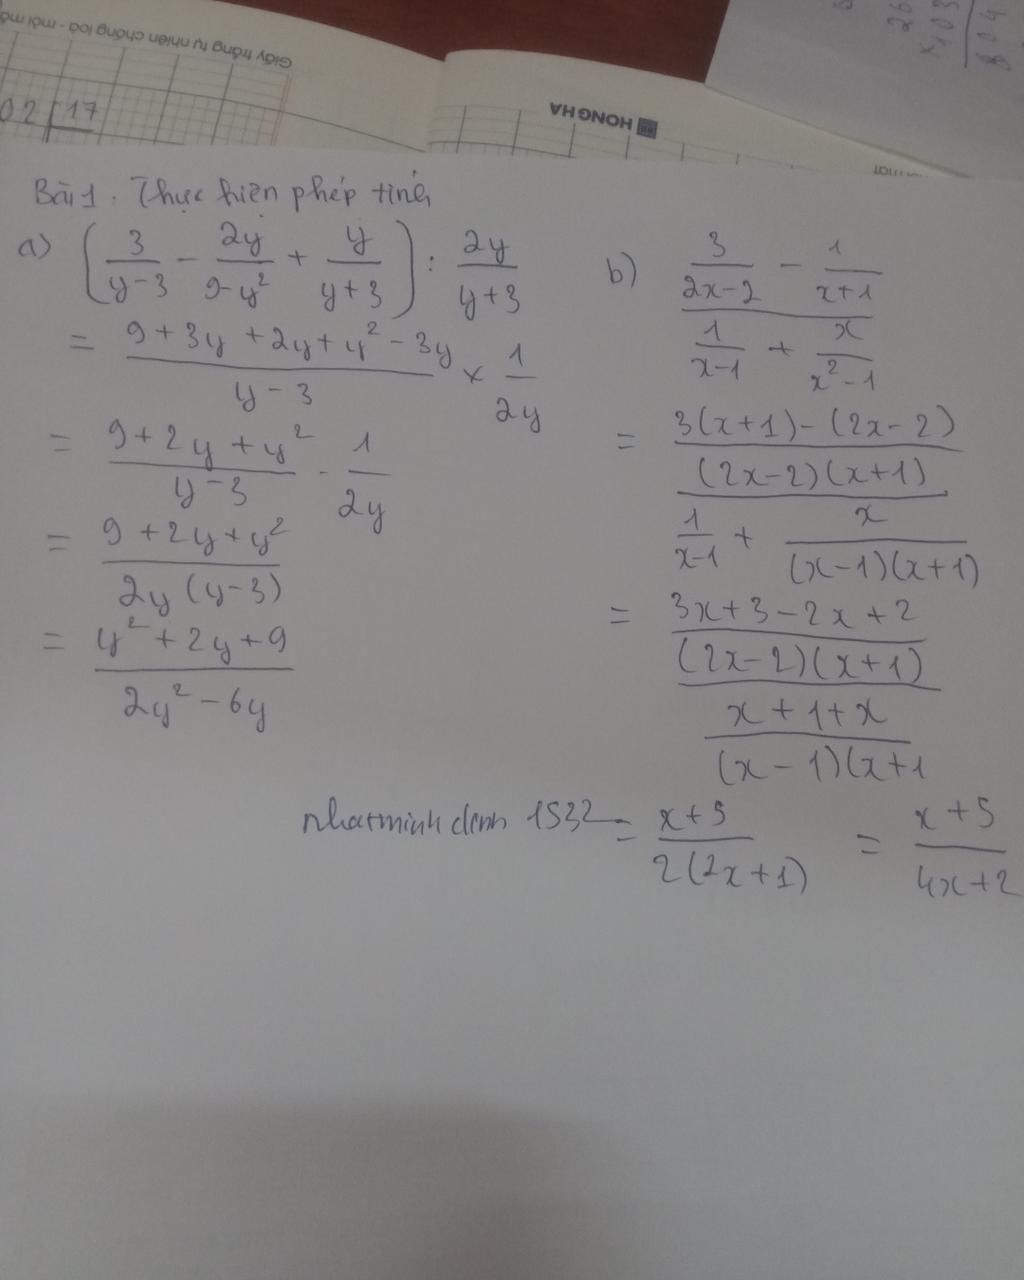 Giấy trắng tự nhiên chống loá - mỏi mắt
HONG HA
02 17
Bài 1. Thực hiện phép tính
a) (3/(y-3) - 2y/(9-y²) + y/(y+3)) : 2y/(y+3)
= (9+3y+2y+y²-3y)/(y-3) × 1/2y
= (9+2y+y²)/(y-3) · 1/2y
= (9+2y+y²)/(2y(y-3))
= (y²+2y+9)/(2y²-6y)
b) (3/(2x-2) - 1/(x+1))/(1/(x-1) + x/(x²-1))
= ((3(x+1)-(2x-2))/((2x-2)(x+1)))/(1/(x-1) + x/((x-1)(x+1)))
= ((3x+3-2x+2)/((2x-2)(x+1)))/((x+1+x)/((x-1)(x+1))
= (x+5)/(2(2x+1)) = (x+5)/(4x+2)
nhatminhdanh 1532